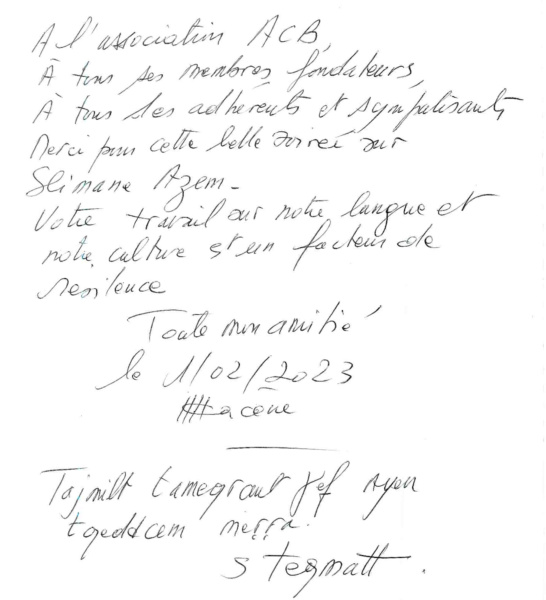 A l'association ACB,
À tous ses membres fondateurs,
À tous ses adhérents et sympatisants
Merci pour cette belle soireé sur
Slimane Azem-
Votre travail sur notre langue et
notre culture est un facteur de
resilence
Toute mon amitié
le 1/02/2023
Tajmilt tameqrant ɣef ayen
tqeddcem meṛṛa.
S tegmatt.